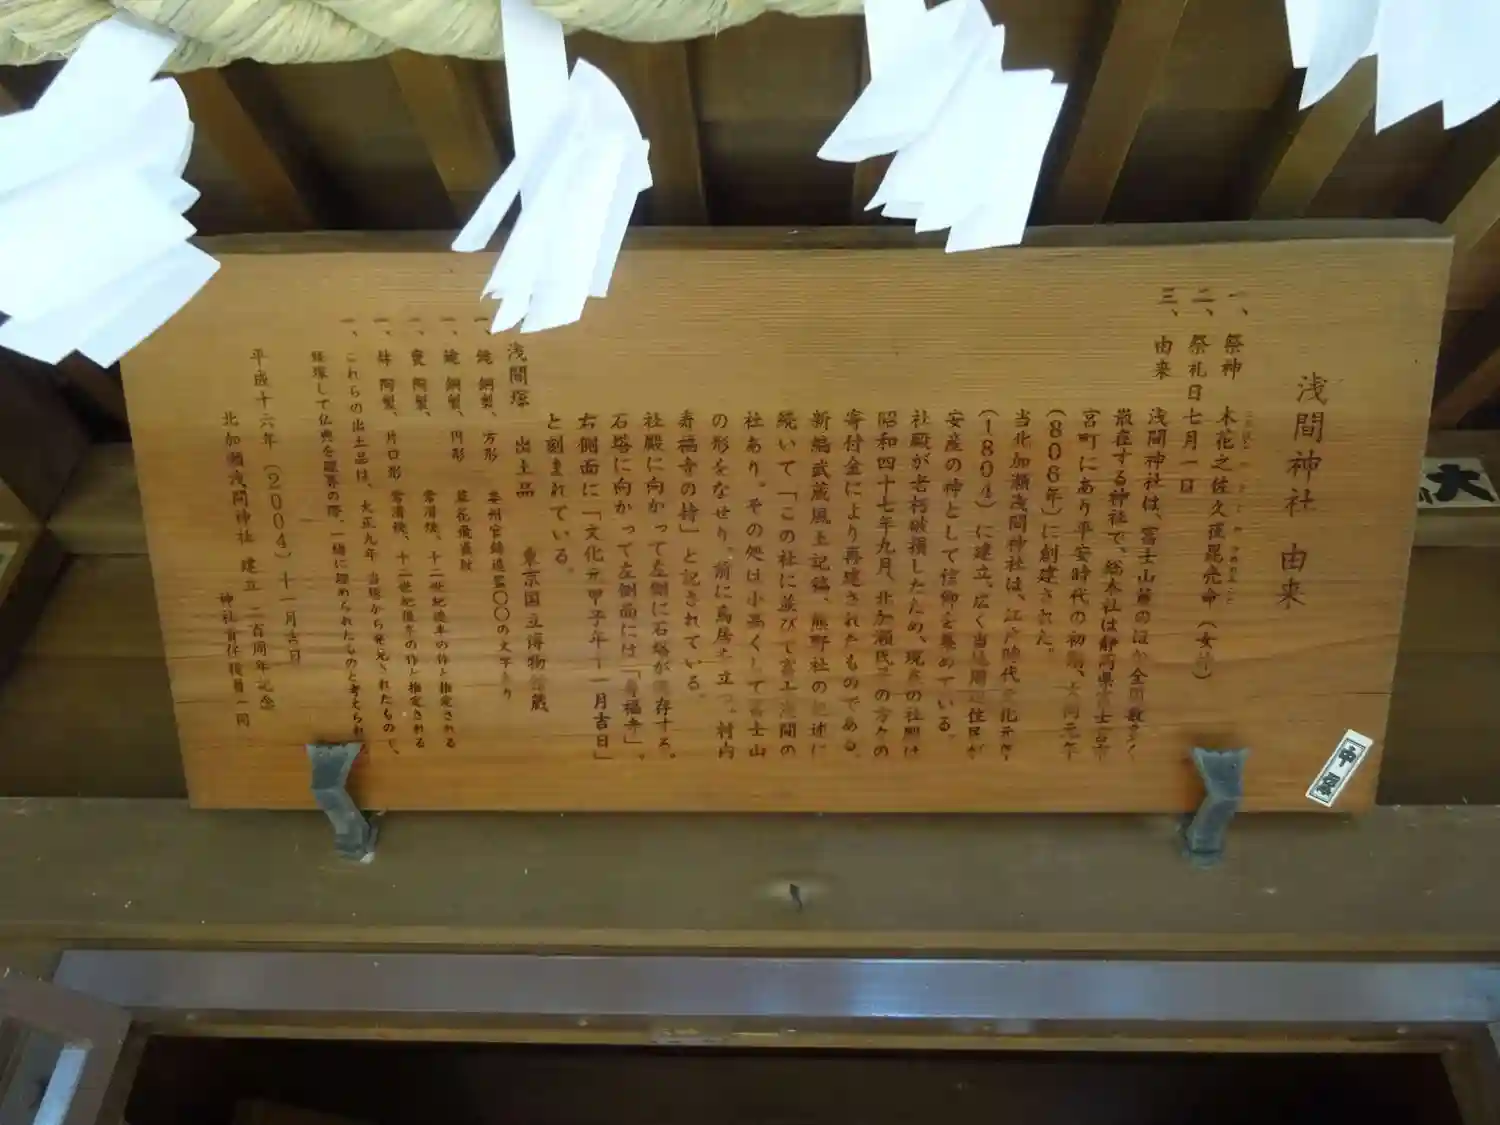 浅間神社 由来
一、祭神 木花之佐久夜毘売命(女神)
二、祭礼日 七月一日
三、由来
浅間神社は、富士山麓のほか全国数多く
散在する神社で、総本社は静岡県富士宮市
宮町にあり平安時代の初期、大同元年
(806年)に創建された。
当北加瀬浅間神社は、江戸時代文化元年
(1804)に建立、広く当地周辺住民が
安産の神として信仰を集めている。
社殿が老朽破損したため、現在の社殿は
昭和四十七年九月、北加瀬氏子の方々の
寄付金により再建されたものである。
新編武蔵風土記稿、熊野社の記述に
続いて「この社に並びて富士浅間の
社あり。その処は小高くして富士山
の形をなせり、前に鳥居を立つ。村内
寿福寺の持」と記されている。
社殿に向かって左側に石塔が現存する。
石塔に向かって左側面には「寿福寺」、
右側面に「文化元甲子年十一月吉日」
と刻まれている。
浅間塚 出土品 東京国立博物館蔵
一、鏡 銅製、方形
一、鏡 銅製、円形
一、甕 陶製、常滑焼、十二世紀後半の作と推定される
一、鉢 陶製、片口形 常滑焼、十二世紀後半の作と推定される
一、これらの出土品は、大正九年 当塚から発見されたもので、
経塚して仏典を埋葬の際、一緒に埋められたものと考えられる
平成十六年(2004)十一月吉日
北加瀬浅間神社 建立 二百周年記念
神社責任役員一同
大